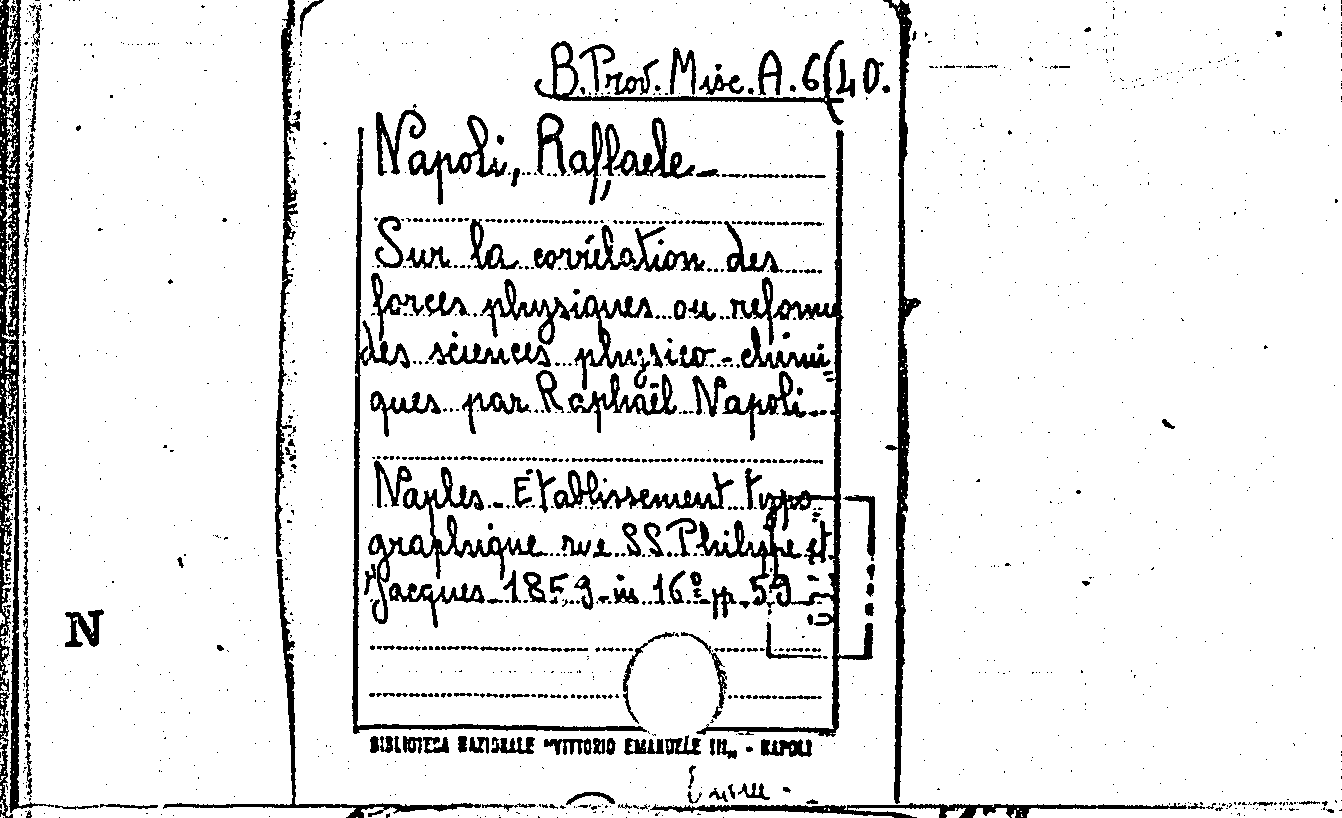 B. Prov. Misc. A. 6(40.
Napoli, Raffaele
Sur la corrélation des
forces physiques ou reforme
des sciences physico-chimi
ques par Raphaël Napoli
Naples - Etablissement typo
graphique rue SS Philippe et
Jacques 1859 in 16º pp. 59
N
BIBLIOTECA NAZIONALE "VITTORIO EMANUELE III„ - NAPOLI